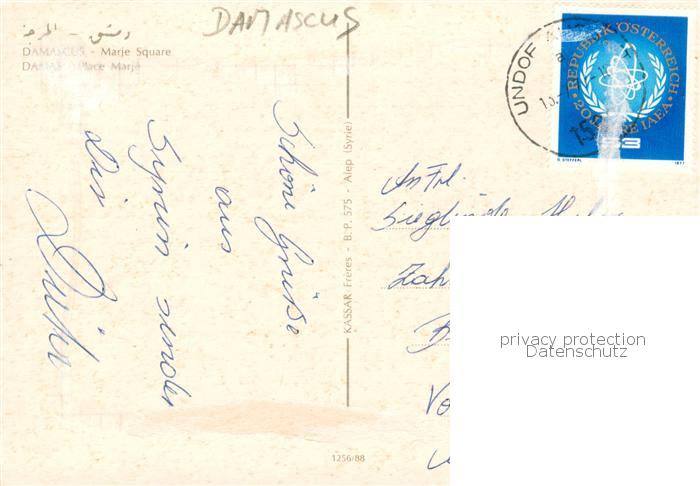 DAMASCUS
دمشق - المرجة
DAMASCUS - Marje Square
DAMAS - Place Marjé
Schöne Grüße
aus
Syrien sendet
Dir
KASSAR Frères - B. P. 575 - Alep (Syrie)
1256/88
UNDOF
REPUBLIK ÖSTERREICH
20 JAHRE IAEA
S3
1977
An Frl.
Sieglinde
privacy protection
Datenschutz